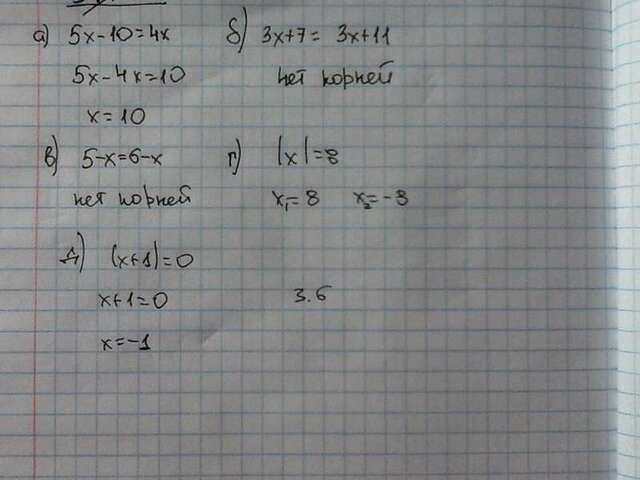 а) 5x-10=4x б) 3x+7= 3x+11
5x-4x=10 нет корней
x=10
в) 5-x=6-x г) |x|=8
нет корней x₁=8 x₂=-8
д) |x+1|=0
x+1=0 3.6
x=-1